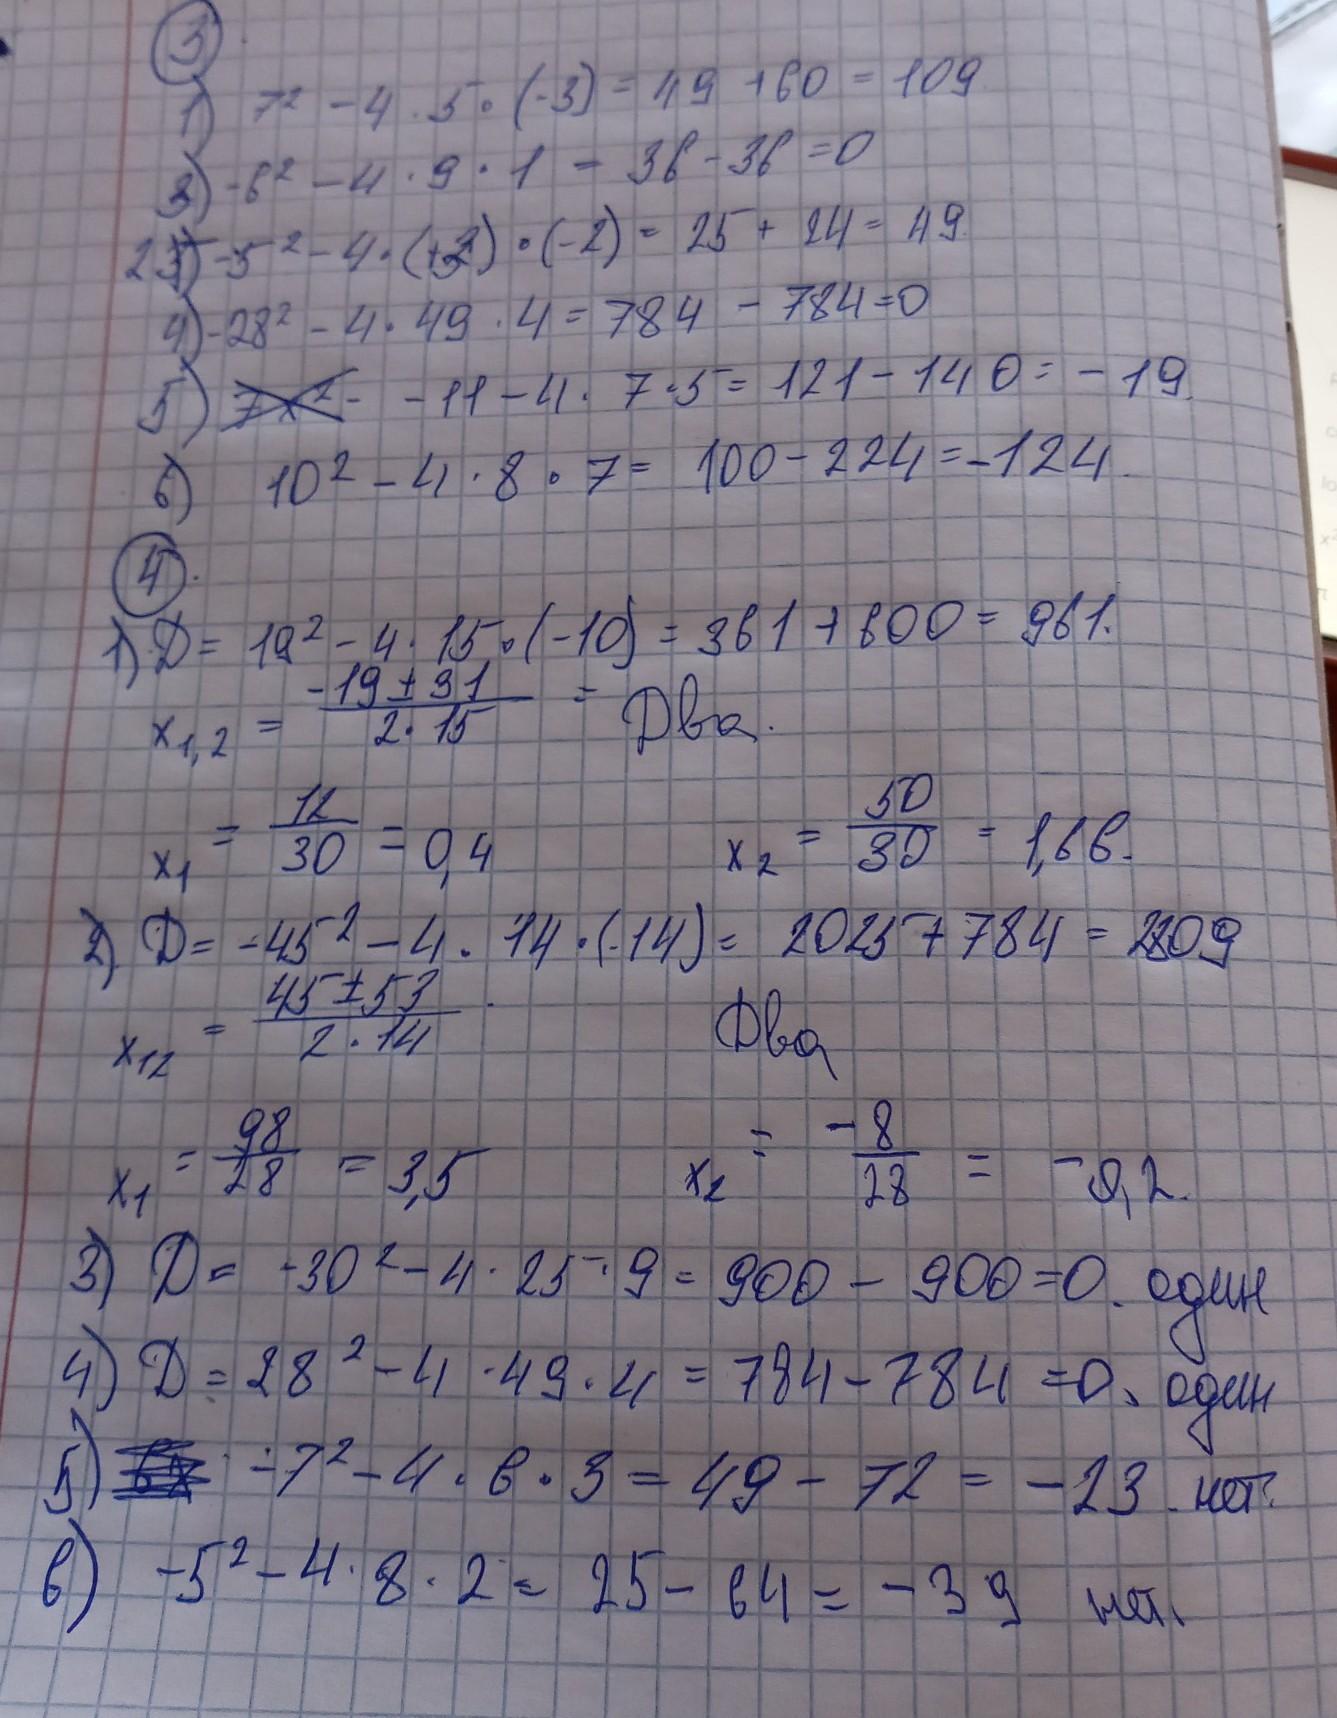 3
1) 7² - 4 · 5 · (-3) = 49 + 60 = 109
2) -6² - 4 · 9 · 1 = 36 - 36 = 0
3) -5² - 4 · (+3) · (-2) = 25 + 24 = 49
4) -28² - 4 · 49 · 4 = 784 - 784 = 0
5) -11 - 4 · 7 · 5 = 121 - 140 = -19
6) 10² - 4 · 8 · 7 = 100 - 224 = -124
4
1) D = 19² - 4 · 15 · (-10) = 361 + 600 = 961.
x1,2 = (-19 ± 31)/(2 · 15) = Два.
x1 = 12/30 = 0,4 x2 = 50/30 = 1,66.
2) D = -45² - 4 · 14 · (-14) = 2025 + 784 = 2809
x12 = (45 ± 53)/(2 · 14) Два
x1 = 98/28 = 3,5 x2 = -8/28 = -0,2.
3) D = -30² - 4 · 25 · 9 = 900 - 900 = 0. один
4) D = 28² - 4 · 49 · 4 = 784 - 784 = 0. один
5) -7² - 4 · 6 · 3 = 49 - 72 = -23. нет.
6) -5² - 4 · 8 · 2 = 25 - 64 = -39 нет.